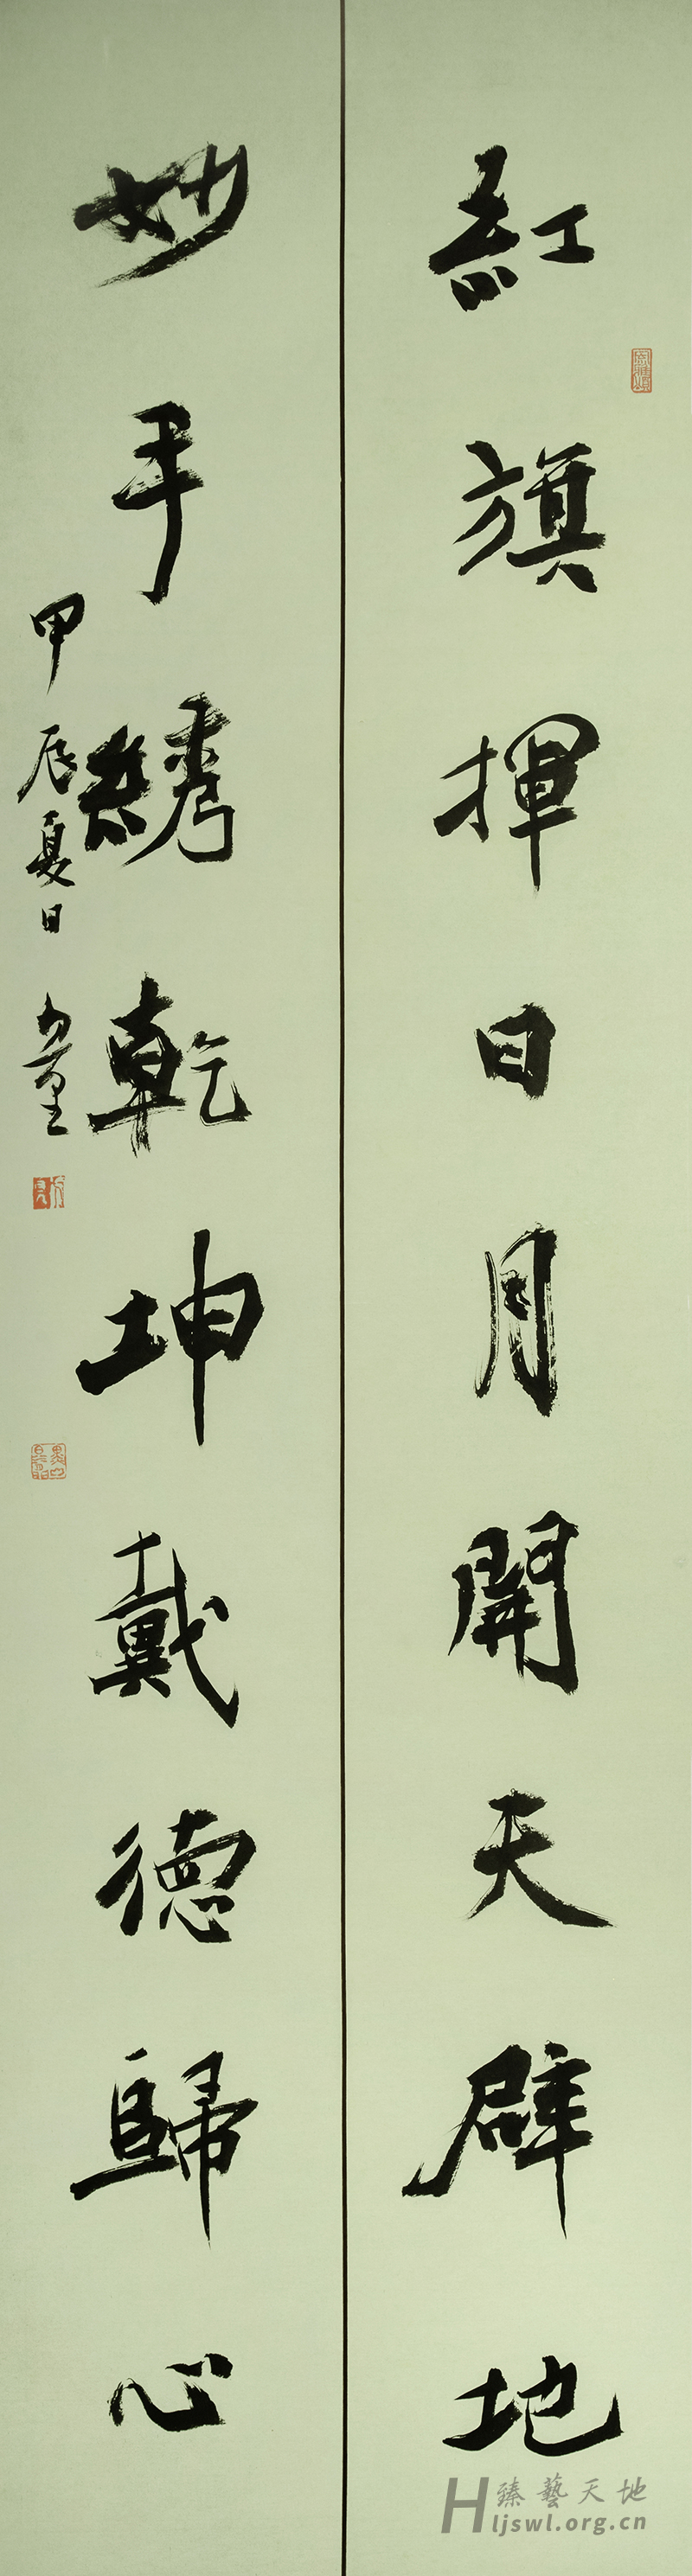 紅旗揮日月開天辟地
妙手繡乾坤戴德歸心
甲辰夏日
臻藝天地
Hljswl.org.cn